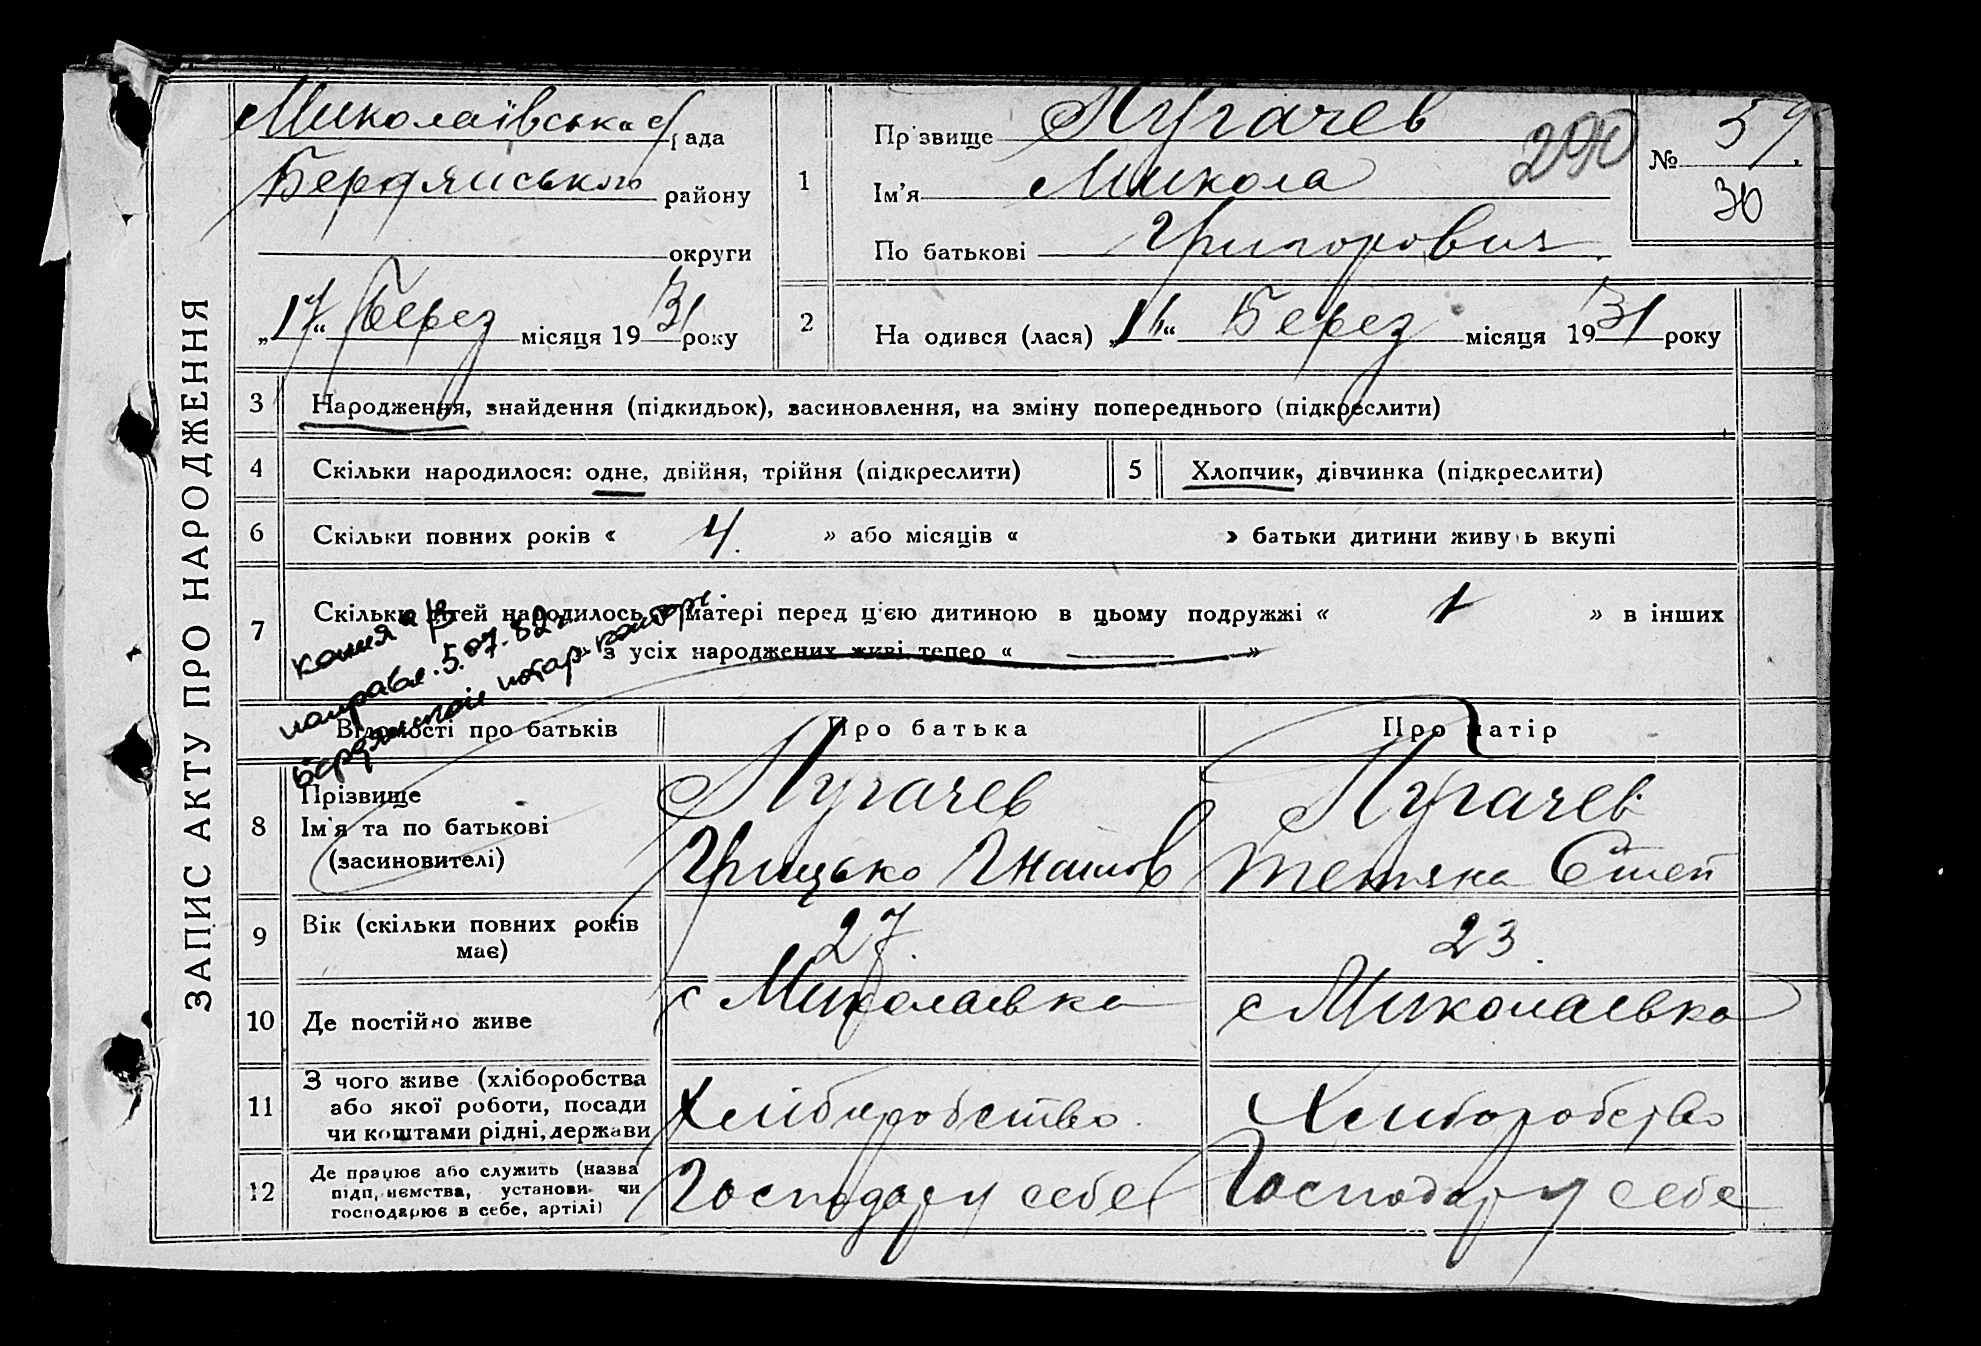 ЗАПИС АКТУ ПРО НАРОДЖЕННЯ
Миколаївська с/рада
Бердянського району
округи
„17“ берез місяця 1931 року
1
Прізвище Пугачев
Ім'я Микола
По батькові Григорович
290
№ 59.
30
2
На одився (лася) „16“ Берез місяця 1931 року
3 Народження, знайдення (підкидьок), засиновлення, на зміну попереднього (підкреслити)
4 Скільки народилося: одне, двійня, трійня (підкреслити)
5 Хлопчик, дівчинка (підкреслити)
6 Скільки повних років « 4. » або місяців « » батьки дитини живуть вкупі
7 Скільки дітей народилось у матері перед цією дитиною в цьому подружжі « 1 » в інших
« » з усіх народжених живі тепер « — »
копия а/в
направл. 5.07.82г
бердянской нотар. конторе
Відомості про батьків
Про батька
Про матір
8 Прізвище
Ім'я та по батькові
(засиновителі)
Пугачев
Грицько Гнатов
Пугачев
Тетяна Степ
9 Вік (скільки повних років
має)
27.
23.
10 Де постійно живе
с Миколаевка
с Миколаевка
11 З чого живе (хліборобства
або якої роботи, посади
чи коштами рідні, держави
Хліборобство.
Хлиборобство
12 Де працює або служить (назва
підприємства, установи чи
господарює в себе, артілі)
Господар у себе
Господар у себе